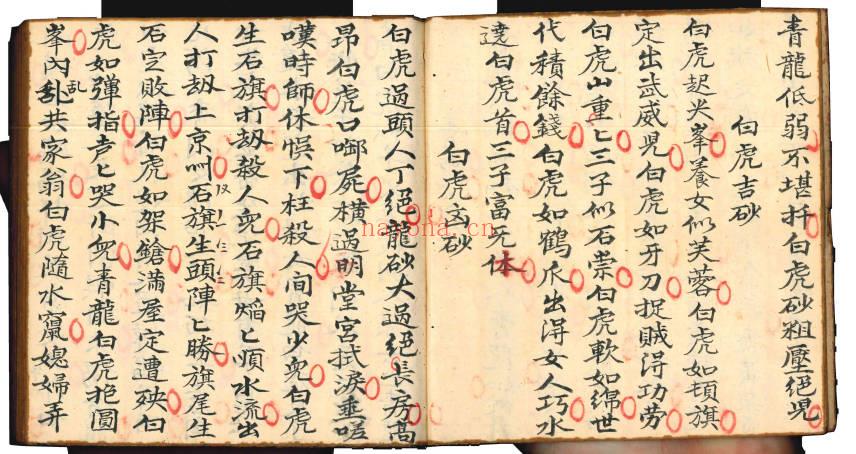 青龍低弱不堪扦白虎砂粗壓絕児
白虎吉砂
白虎起尖峯養女似芙蓉白虎如頓旗
定出武威児白虎如牙刀捉賊淂功劳
白虎山重〻三子似石崇白虎軟如綿世
代積餘錢白虎如鶴爪出淂女人巧水
遶白虎首三子富无休
白虎凶砂
白虎過頭人丁絕龍砂大過絕長房高
昂白虎口啣屍橫過明堂宮拭淚垂嗟
嘆時師休悮下枉殺人间哭少兒白虎
生石旗打刼殺人兜石旗焰〻順水流出
人打刼上京州石旗生頭陣〻勝旗尾生
石定敗陣白虎如架鎗滿屋定遭殃白
虎如弹指声〻哭小兒青龍白虎抱圓
峯内乱共家翁白虎隨水竄媳婦弄
乱
hayona.cn